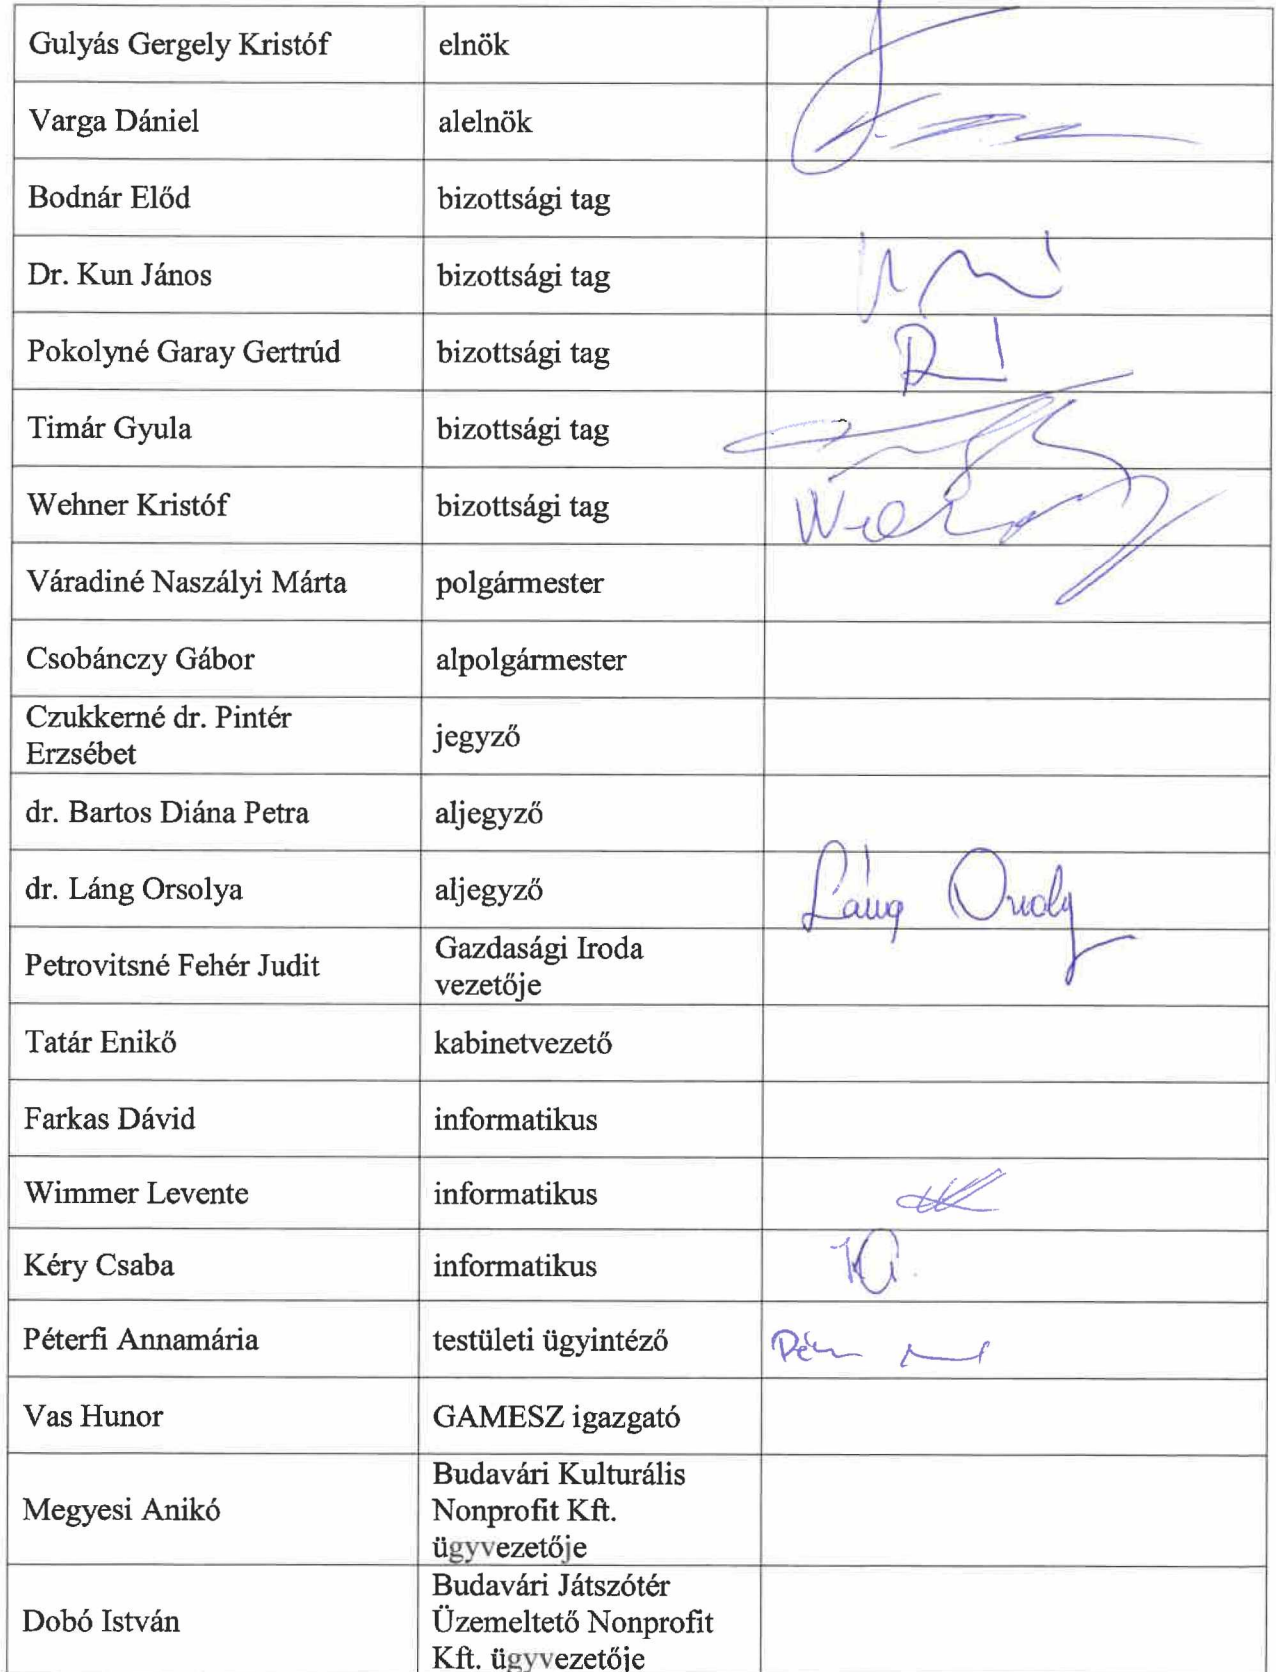 Gulyás Gergely Kristóf elnök
Varga Dániel alelnök
Bodnár Előd bizottsági tag
Dr. Kun János bizottsági tag
Pokolyné Garay Gertrúd bizottsági tag
Timár Gyula bizottsági tag
Wehner Kristóf bizottsági tag
Váradiné Naszályi Márta polgármester
Csobánczy Gábor alpolgármester
Czukkerné dr. Pintér
Erzsébet
jegyző
dr. Bartos Diána Petra aljegyző
dr. Láng Orsolya aljegyző Láng Orsolya
Petrovitsné Fehér Judit
Gazdasági Iroda
vezetője
Tatár Enikő kabinetvezető
Farkas Dávid informatikus
Wimmer Levente informatikus
Kéry Csaba informatikus
Péterfi Annamária testületi ügyintéző
Vas Hunor GAMESZ igazgató
Megyesi Anikó
Budavári Kulturális
Nonprofit Kft.
ügyvezetője
Dobó István
Budavári Játszótér
Üzemeltető Nonprofit
Kft. ügyvezetője